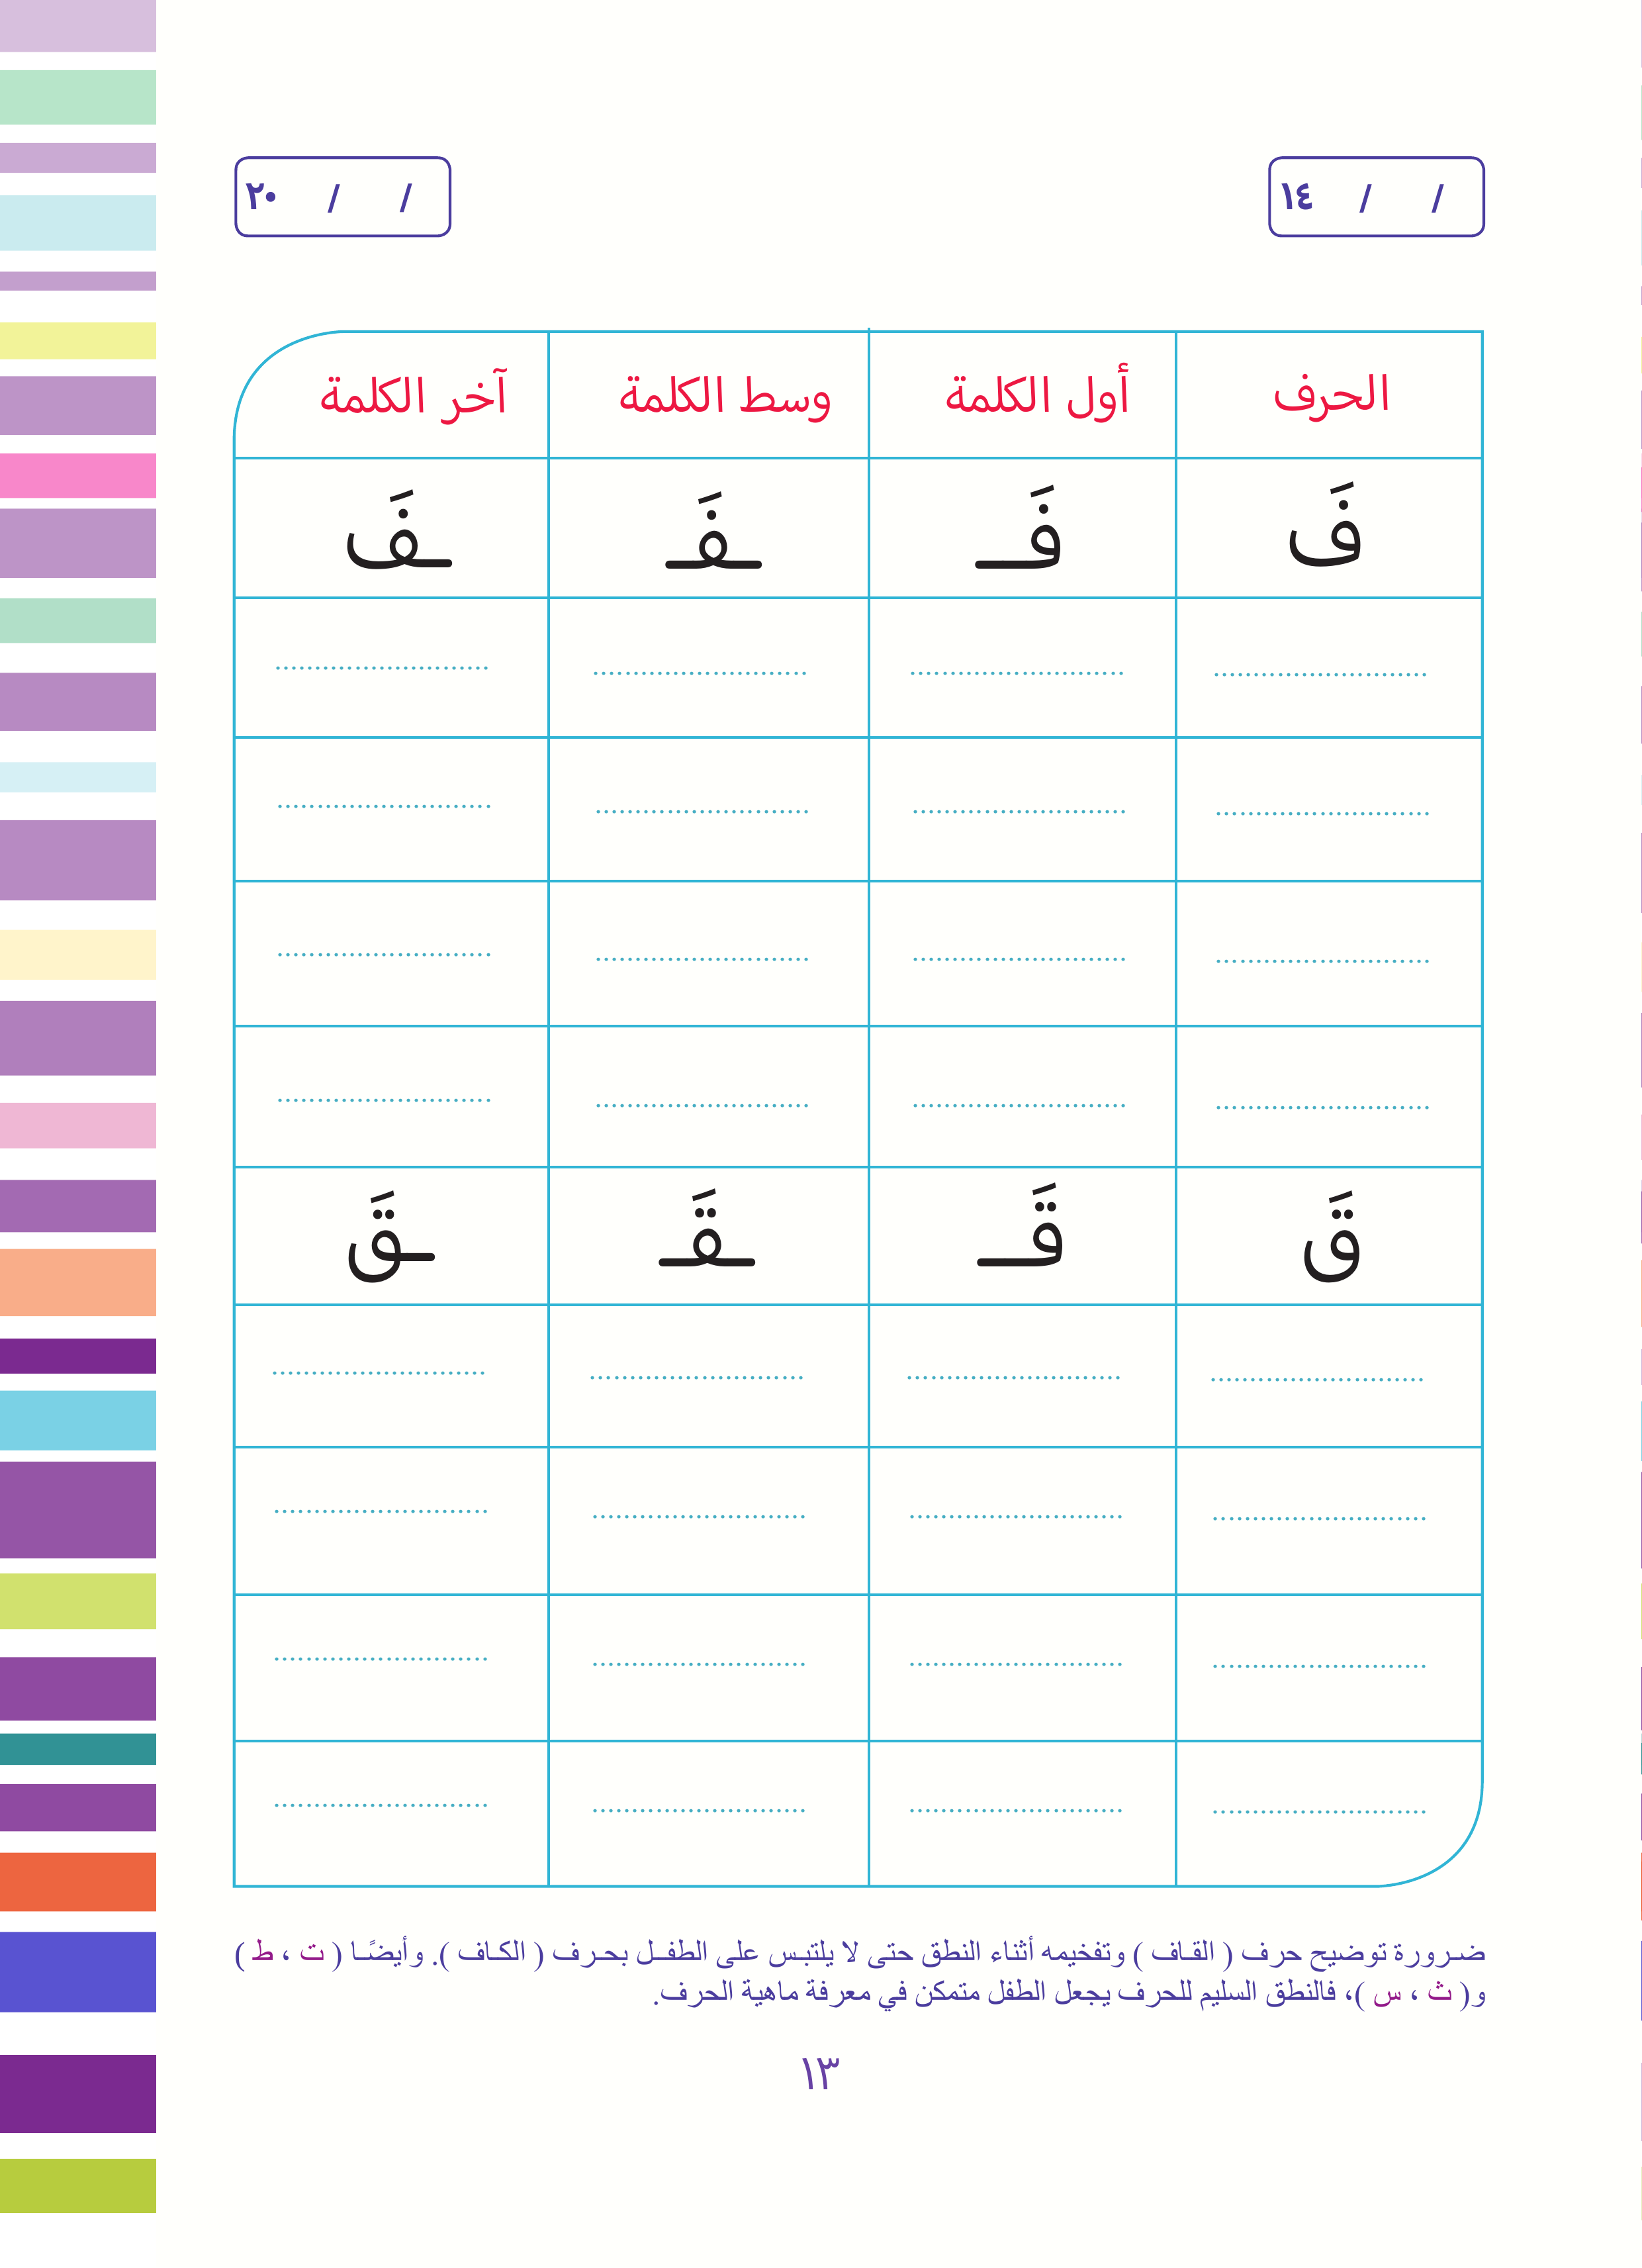 ١٤ / /
٢٠ / /
الحرف أول الكلمة وسط الكلمة آخر الكلمة
فَ فَـ ـفَـ ـفَ
قَ قَـ ـقَـ ـقَ
ضـرورة توضيح حرف ( القـاف ) وتفخيمه أثناء النطق حتى لا يلتبـس على الطفــل بحـرف ( الكـاف ). وأيضًـا ( ت ، ط )
و( ث ، س )، فالنطق السليم للحرف يجعل الطفل متمكن في معرفة ماهية الحرف.
١٣